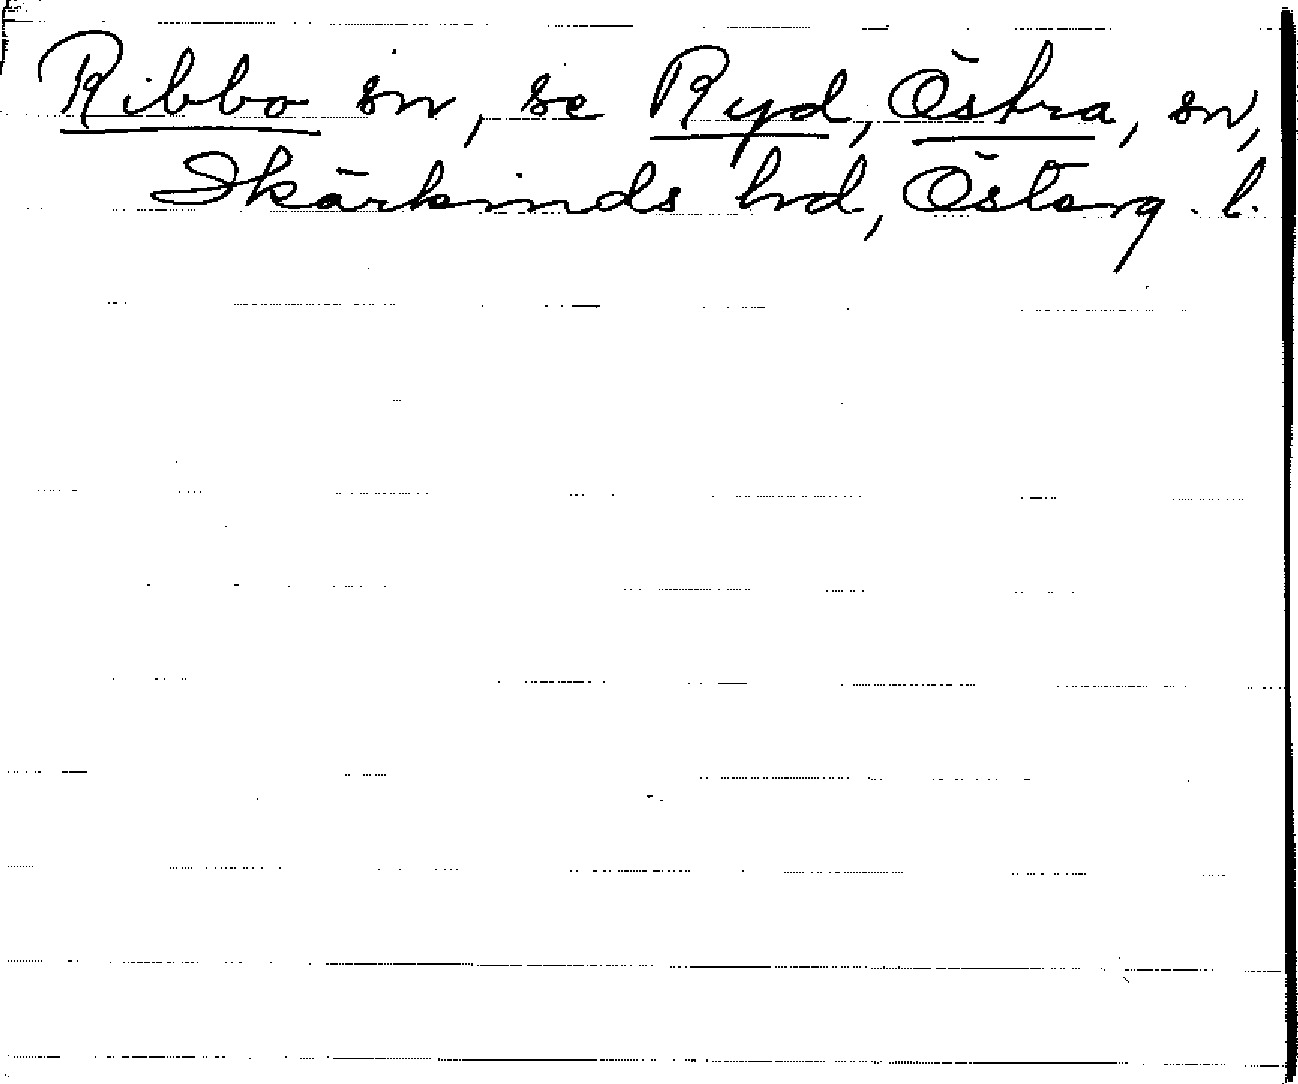 Ribbo sn, se Ryd, Östra, sn,
Skärkinds hd, Österg. l.